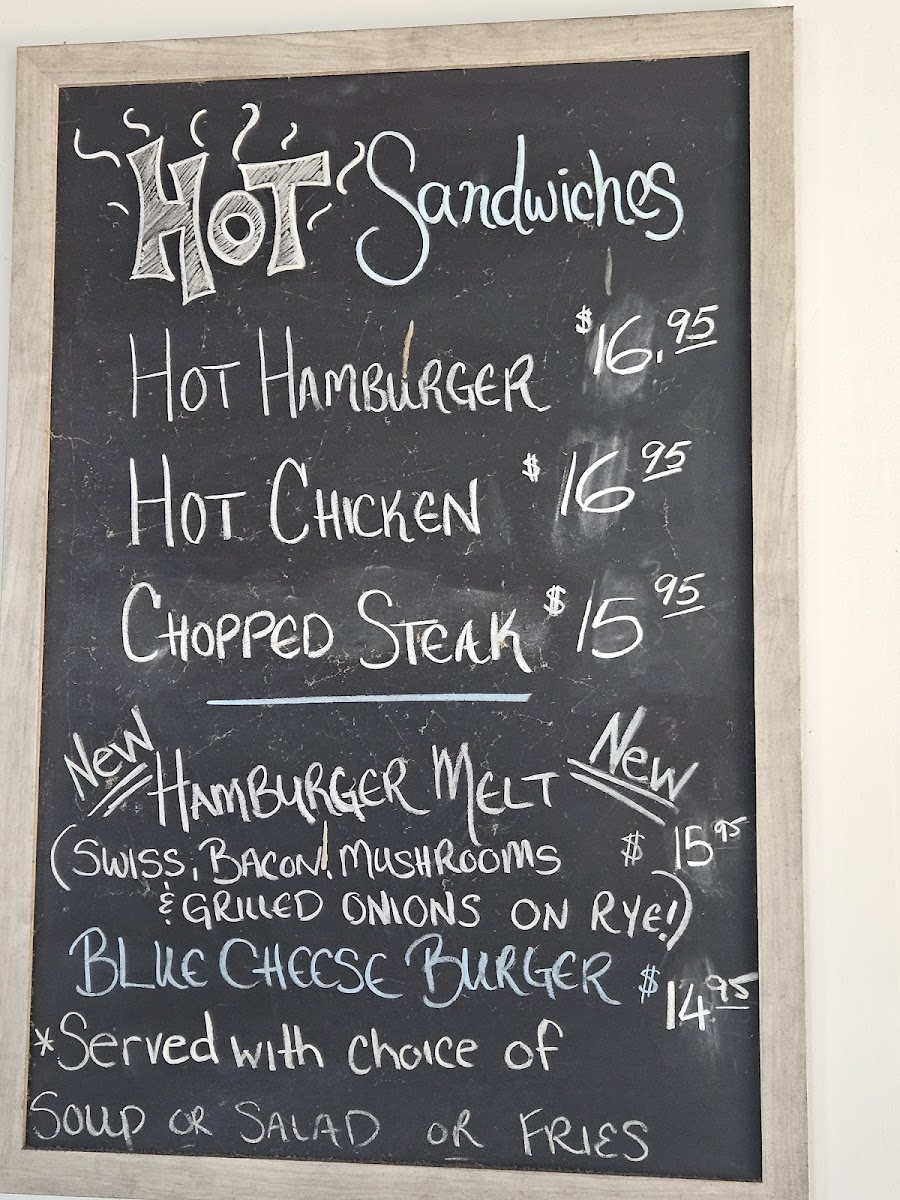 HOT Sandwiches
HOT HAMBURGER $16.95
HOT CHICKEN $16 95
CHOPPED STEAK $15 95
New HAMBURGER MELT New
(SWISS, BACON, MUSHROOMS $15 95
& GRILLED ONIONS ON RYE!)
BLUE CHEESE BURGER $14.95
*Served with choice of
SOUP OR SALAD OR FRIES